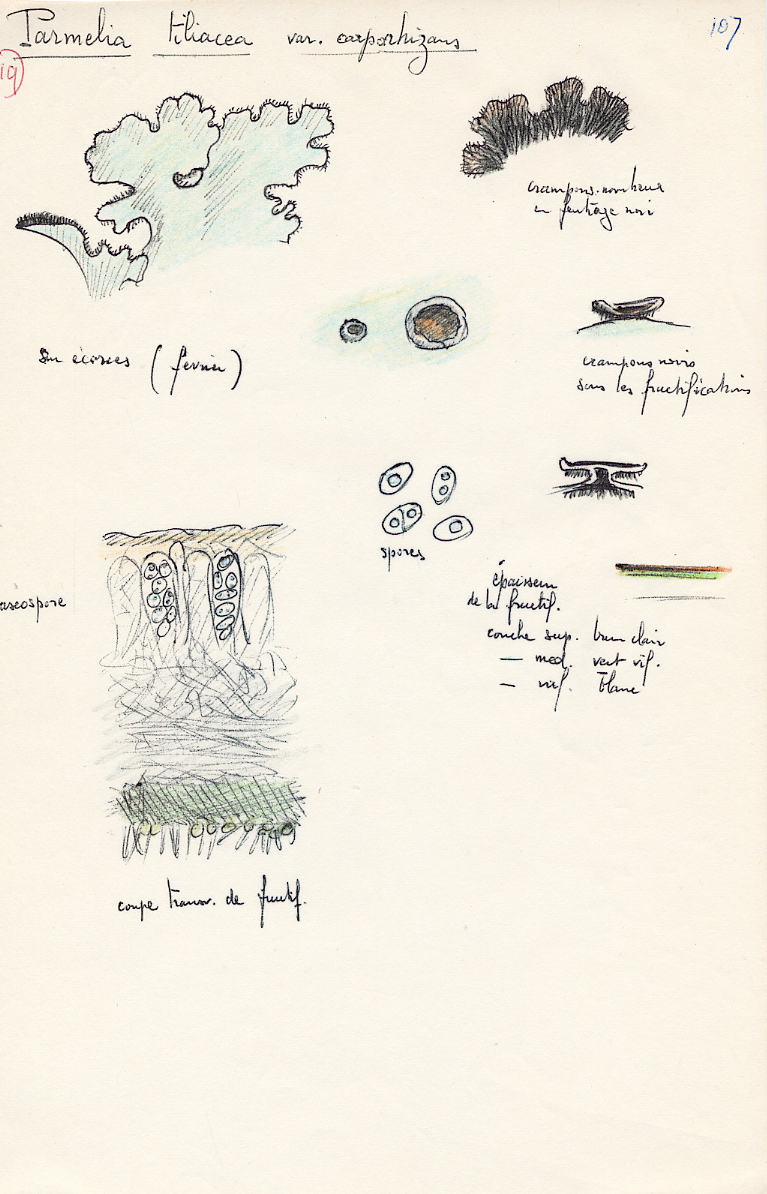 Parmelia tiliacea var. carporhizans
107
19
crampons nombreux
en feutrage noir
sur écorces (février)
crampons noirs
sous les fructifications
spores
ascospore
épaisseur
de la fructif.
couche sup. brun clair
— med. vert vif.
— inf. blanc
coupe transv. de fructif.